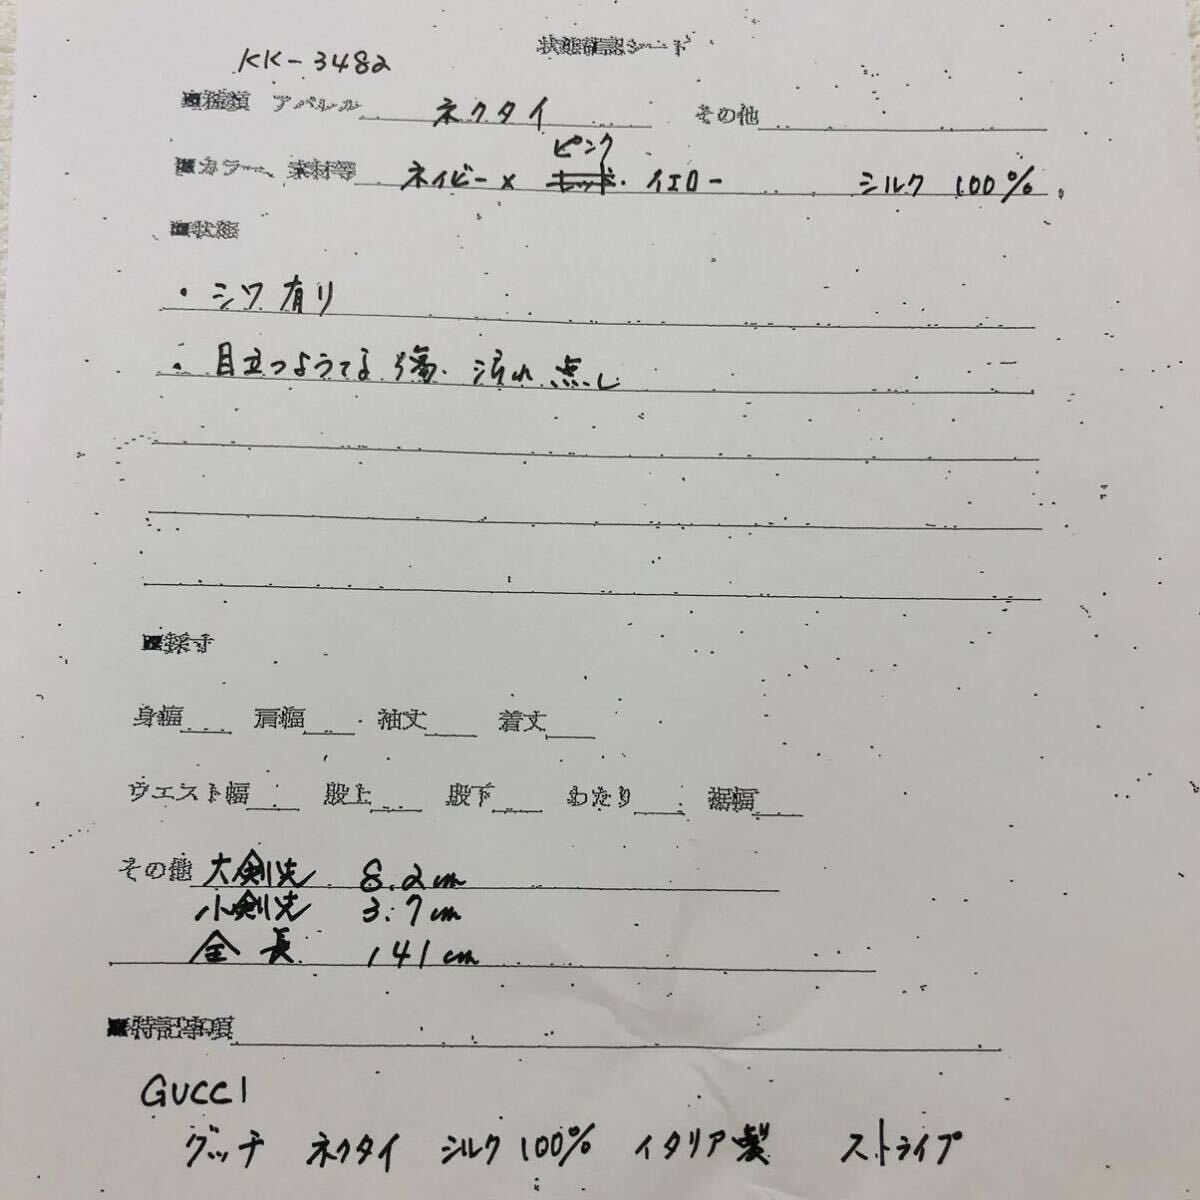 状態確認シート
KK-3482
■種類 アパレル ネクタイ その他
ピンク
■カラー、素材等 ネイビー× レッド・イエロー シルク 100%
■状態
・シワ有り
・目立つようてる 傷、汚れ 点し
■採寸
身幅 肩幅 袖丈 着丈
ウエスト幅 股上 股下 わたり 裾幅
その他 大剣先 8.2cm
小剣先 3.7cm
全長 141cm
■特記事項
GUCCI
グッチ ネクタイ シルク100% イタリア製 ストライプ